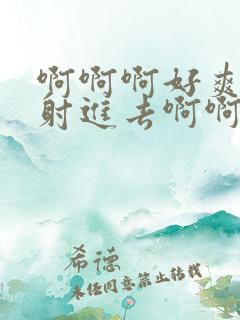 啊啊啊好爽
射进去啊啊
希德
未经同意禁止转载